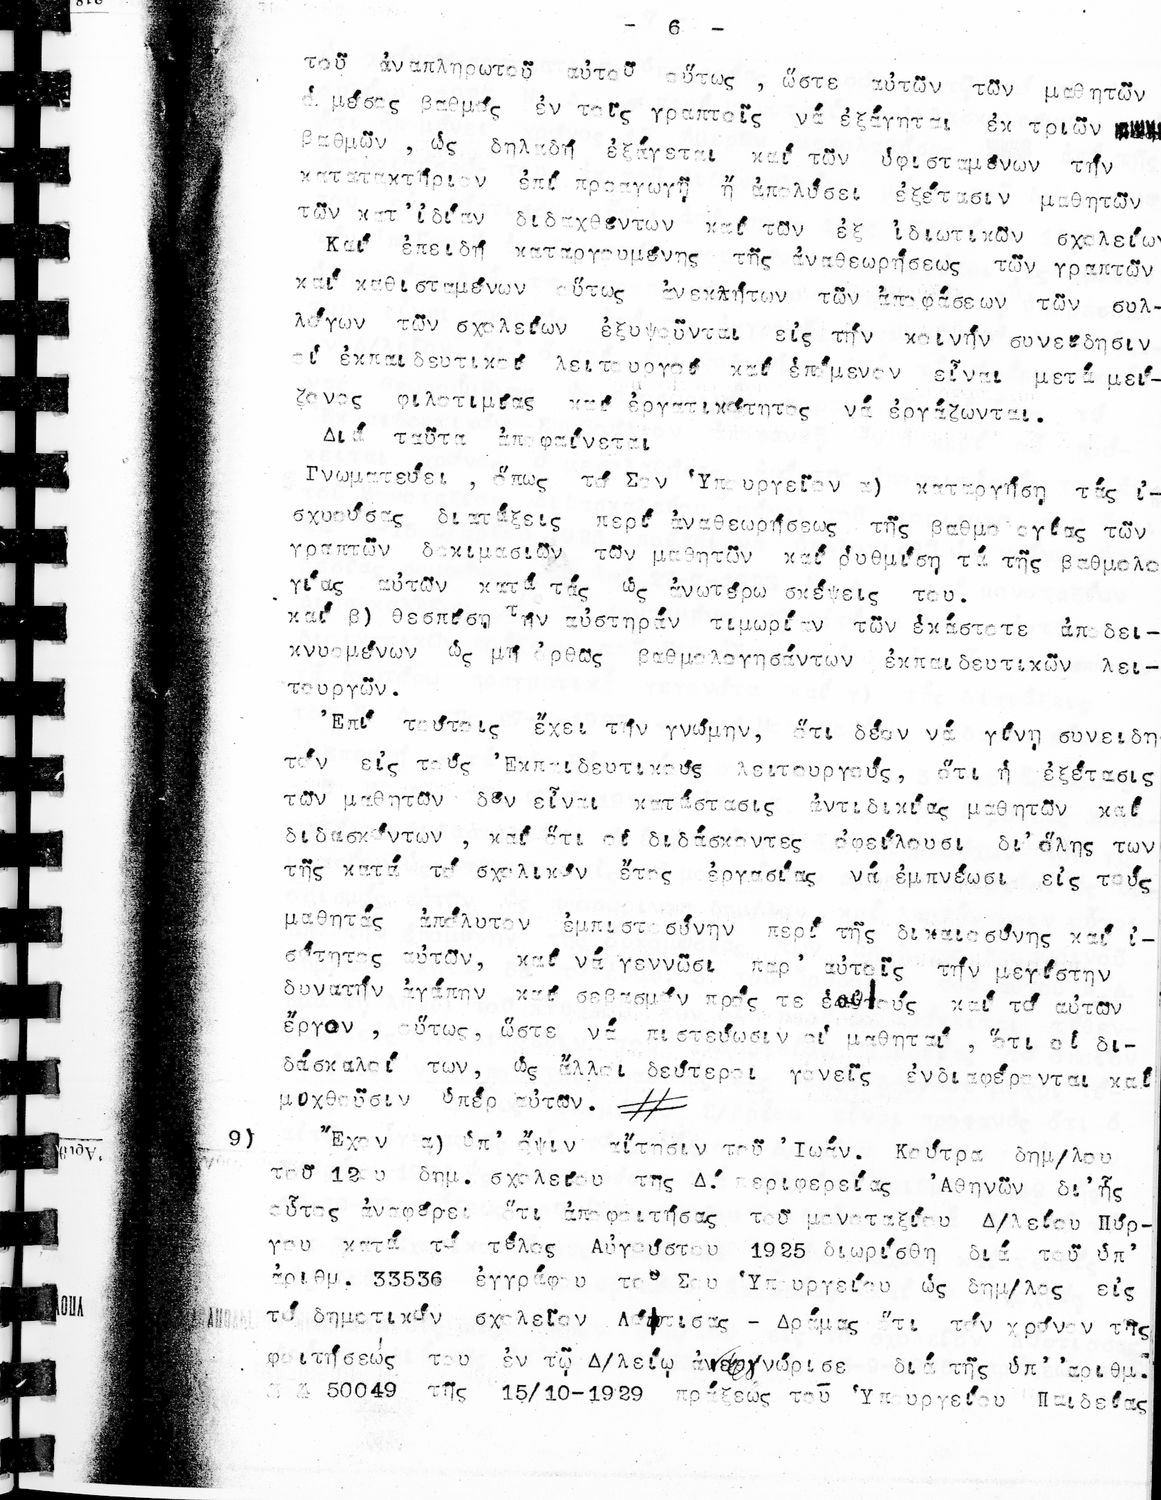 - 6 -
τοῦ ἀναπληρωτοῦ αὐτοῦ οὕτως , ὥστε αὐτῶν τῶν μαθητῶν
ὁ μέσος βαθμός ἐν τοῖς γραπτοῖς νά ἐξάγηται ἐκ τριῶν
βαθμῶν , ὡς δηλαδή ἐξάγεται καί τῶν ὑφισταμένων τήν
κατατακτήριον ἐπί προαγωγῇ ἤ ἀπολύσει ἐξέτασιν μαθητῶν
τῶν κατ'ἰδίαν διδαχθέντων καί τῶν ἐξ ἰδιωτικῶν σχολείων
Καί ἐπειδή καταργουμένης τῆς ἀναθεωρήσεως τῶν γραπτῶν
καί καθισταμένων οὕτως ἀνεκλήτων τῶν ἀποφάσεων τῶν συλ-
λόγων τῶν σχολείων ἐξυψοῦνται εἰς τήν κοινήν συνείδησιν
οἱ ἐκπαιδευτικοί λειτουργοί καί ἑπόμενον εἶναι μετά μεί-
ζονος φιλοτιμίας καί ἐργατικότητος νά ἐργάζωνται.
Διά ταῦτα ἀποφαίνεται
Γνωματεύει , ὅπως τό Σον Ὑπουργεῖον α) καταργήσῃ τάς ἰ-
σχυούσας διατάξεις περί ἀναθεωρήσεως τῆς βαθμολογίας τῶν
γραπτῶν δοκιμασιῶν τῶν μαθητῶν καί ρυθμίσῃ τά τῆς βαθμολο
γίας αὐτῶν κατά τάς ὡς ἀνωτέρω σκέψεις του.
καί β) θεσπίσῃ τήν αὐστηράν τιμωρίαν τῶν ἑκάστοτε ἀποδει-
κνυομένων ὡς μή ὀρθῶς βαθμολογησάντων ἐκπαιδευτικῶν λει-
τουργῶν.
Ἐπί τούτοις ἔχει τήν γνώμην, ὅτι δέον νά γίνῃ συνειδη
τόν εἰς τούς Ἐκπαιδευτικούς λειτουργούς, ὅτι ἡ ἐξέτασις
τῶν μαθητῶν δέν εἶναι κατάστασις ἀντιδικίας μαθητῶν καί
διδασκόντων , καί ὅτι οἱ διδάσκοντες ὀφείλουσι δι'ὅλης των
τῆς κατά τό σχολικόν ἔτος ἐργασίας νά ἐμπνέωσι εἰς τούς
μαθητάς ἀπόλυτον ἐμπιστοσύνην περί τῆς δικαιοσύνης καί ἰ-
σότητος αὐτῶν, καί νά γεννῶσι παρ' αὐτοῖς τήν μεγίστην
δυνατήν ἀγάπην καί σεβασμόν πρός τε ἑαυτούς καί τό αὐτῶν
ἔργον , οὕτως, ὥστε νά πιστεύωσιν οἱ μαθηταί , ὅτι οἱ δι-
δάσκαλοί των, ὡς ἄλλοι δεύτεροι γονεῖς ἐνδιαφέρονται καί
μοχθοῦσιν ὑπέρ αὐτῶν.
9) Ἔχον α) ὑπ' ὄψιν αἴτησιν τοῦ Ἰωάν. Κούτρα δημ/λου
τοῦ 12ου δημ. σχολείου τῆς Δ. περιφερείας Ἀθηνῶν δι'ἧς
οὗτος ἀναφέρει ὅτι ἀποφοιτήσας τοῦ μονοταξίου Δ/λείου Πύρ-
γου κατά τό τέλος Αὐγούστου 1925 διωρίσθη διά τοῦ ὑπ'
ἀριθμ. 33536 ἐγγράφου τοῦ Σου Ὑπουργείου ὡς δημ/λος εἰς
τό δημοτικόν σχολεῖον - Δράμας ὅτι τόν χρόνον τῆς
φοιτήσεώς του ἐν τῷ Δ/λείῳ ἀνεγνώρισε διά τῆς ὑπ' ἀριθμ.
50049 τῆς 15/10-1929 πράξεώς τοῦ Ὑπουργείου Παιδείας